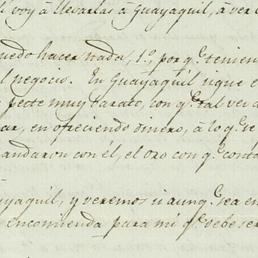 voy a llevarlas a Guayaquil, a ver
uedo hacer nada, 1.º, por q.e tenien
l negocio. En Guayaquil sigue e
fecte muy barato, con q.e tal vez
ar, en ofreciendo dinero, a lo q.e ve
andaron con él, el oro con q.e conta
ayaquil, y veremos si aunq.e sea en
encomienda para mi q.e debe ser